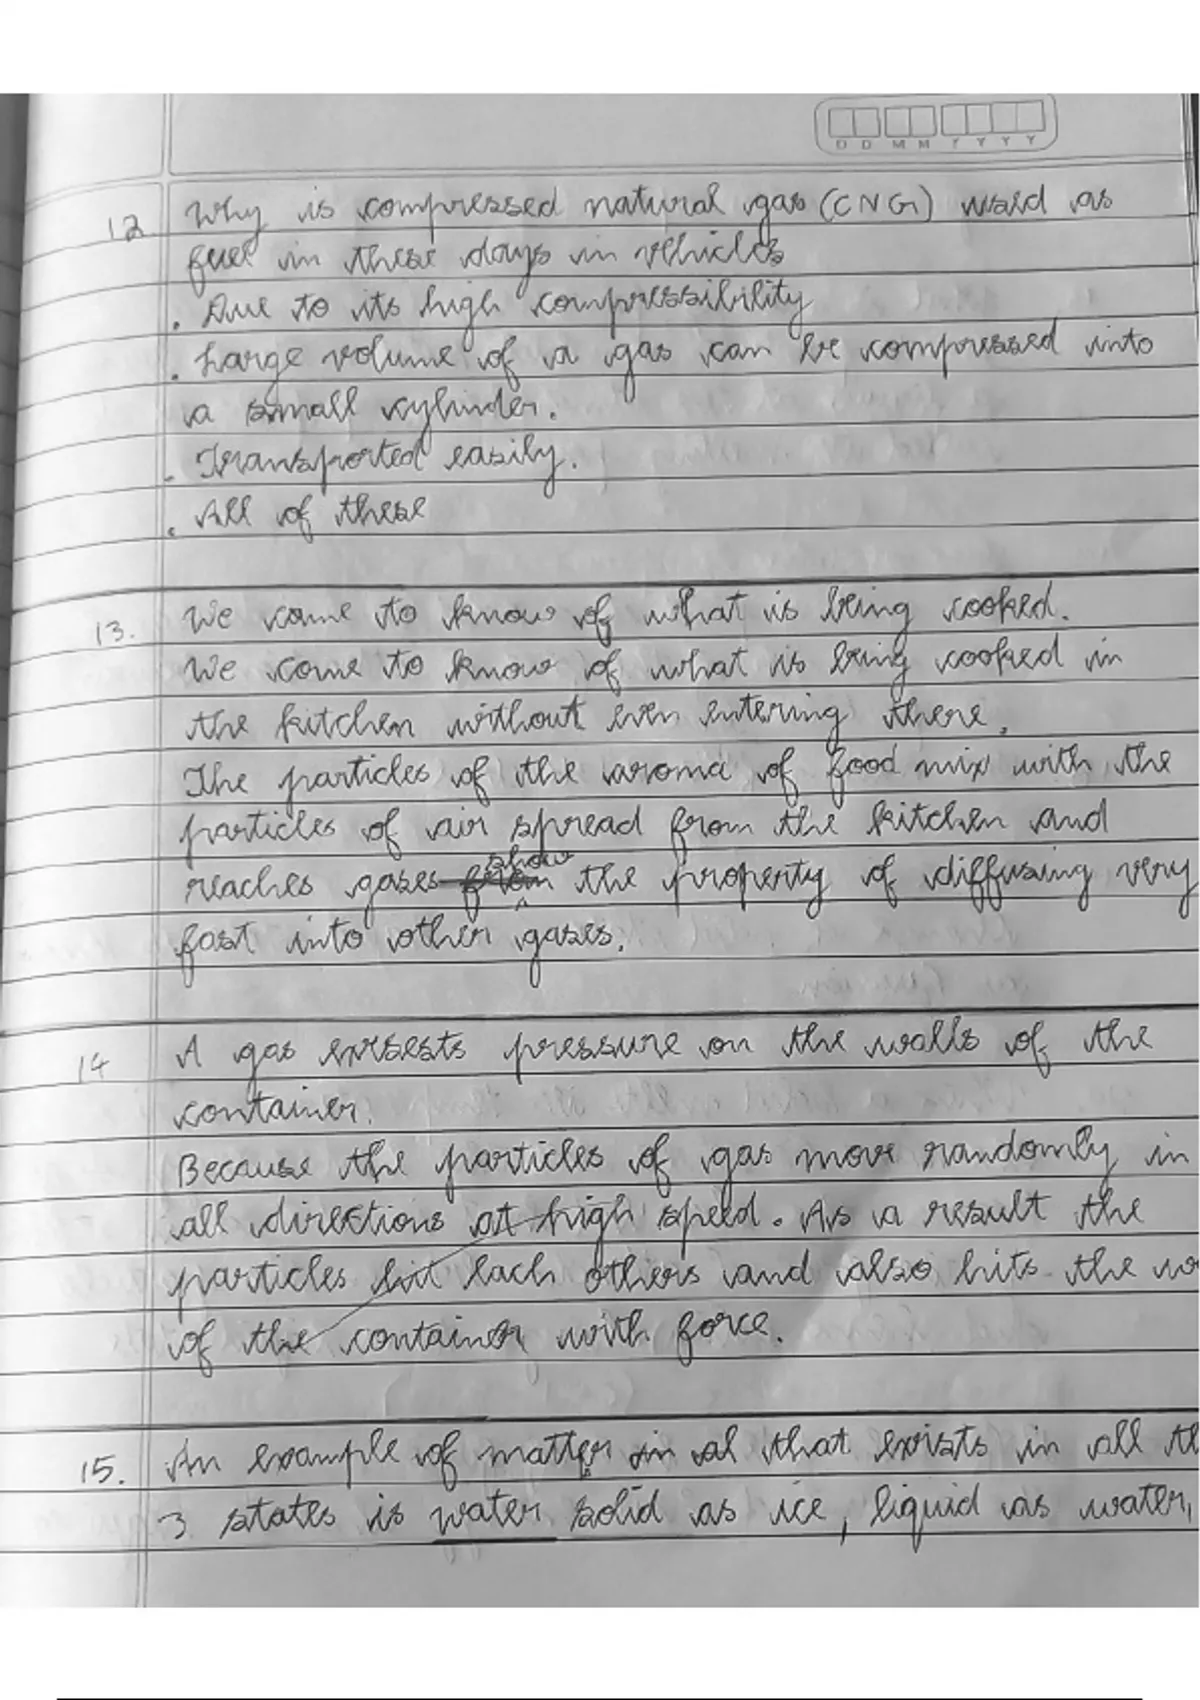 D D M M Y Y Y Y
12 Why is compressed natural gas (CNG) used as
fuel in these days in vehicles
. Due to its high compressibility
. Large volume of a gas can be compressed into
a small cylinder.
. Transported easily.
. All of these
13. We come to know of what is being cooked.
We come to know of what is being cooked in
the kitchen without even entering there.
The particles of the aroma of food mix with the
particles of air spread from the kitchen and
reaches gases show the property of diffusing very
fast into other gases.
14 A gas exsests pressure on the walls of the
container.
Because the particles of gas move randomly in
all directions at high speed. As a result the
particles hit each others and also hits the
of the container with force.
15. An example of matter in al that exists in all
3 states is water solid as ice, liquid as water,